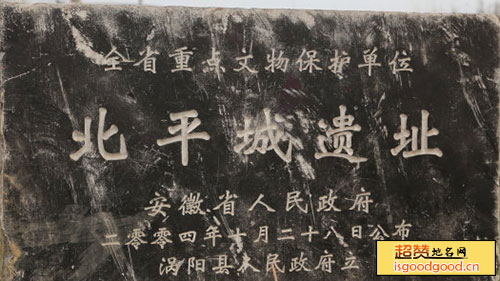 全省重点文物保护单位
北平城遗址
安徽省人民政府
二零零四年十月二十八日公布
涡阳县人民政府立
超赞地名网
isgoodgood.cn